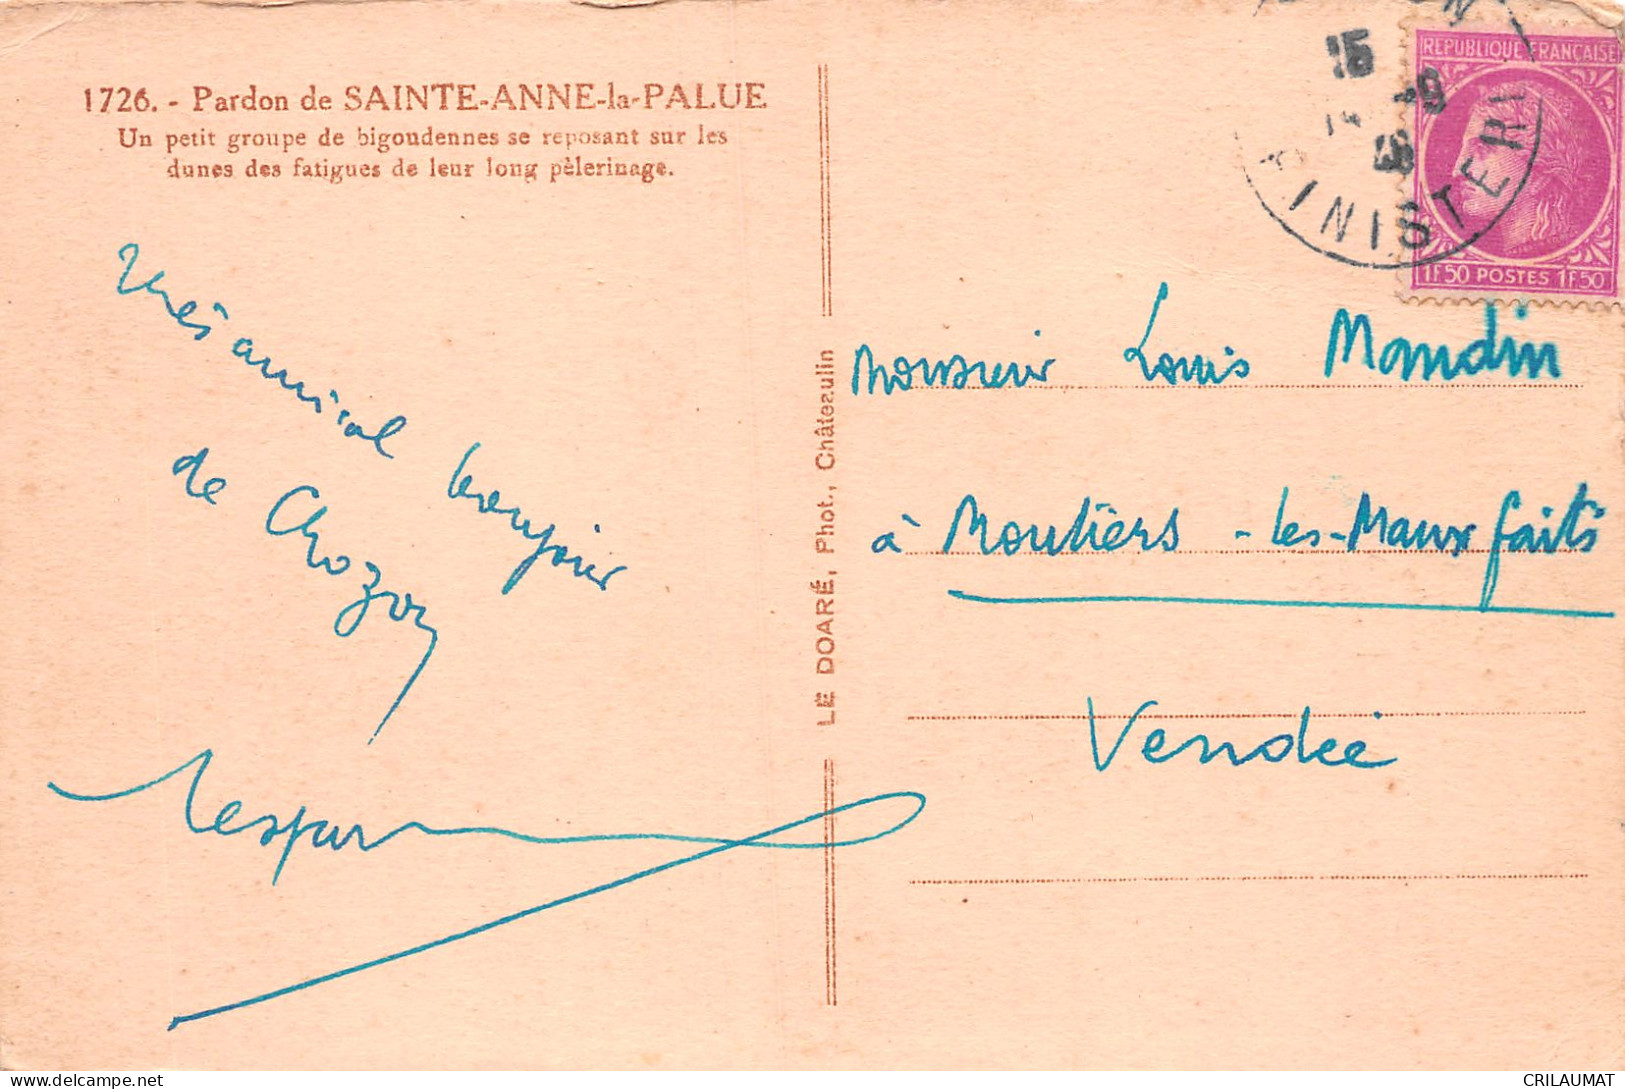 1726. - Pardon de SAINTE-ANNE-la-PALUE
Un petit groupe de bigoudennes se reposant sur les
dunes des fatigues de leur long pèlerinage.
Très amical bonjour
de Crozon
LE DOARÉ, Phot., Châteaulin
15
-9
INISTERE
REPUBLIQUE FRANÇAISE
1F50 POSTES 1F50
Monsieur Louis Mandin
à Moutiers-les-Mauxfaits
Vendée
CRILAUMAT